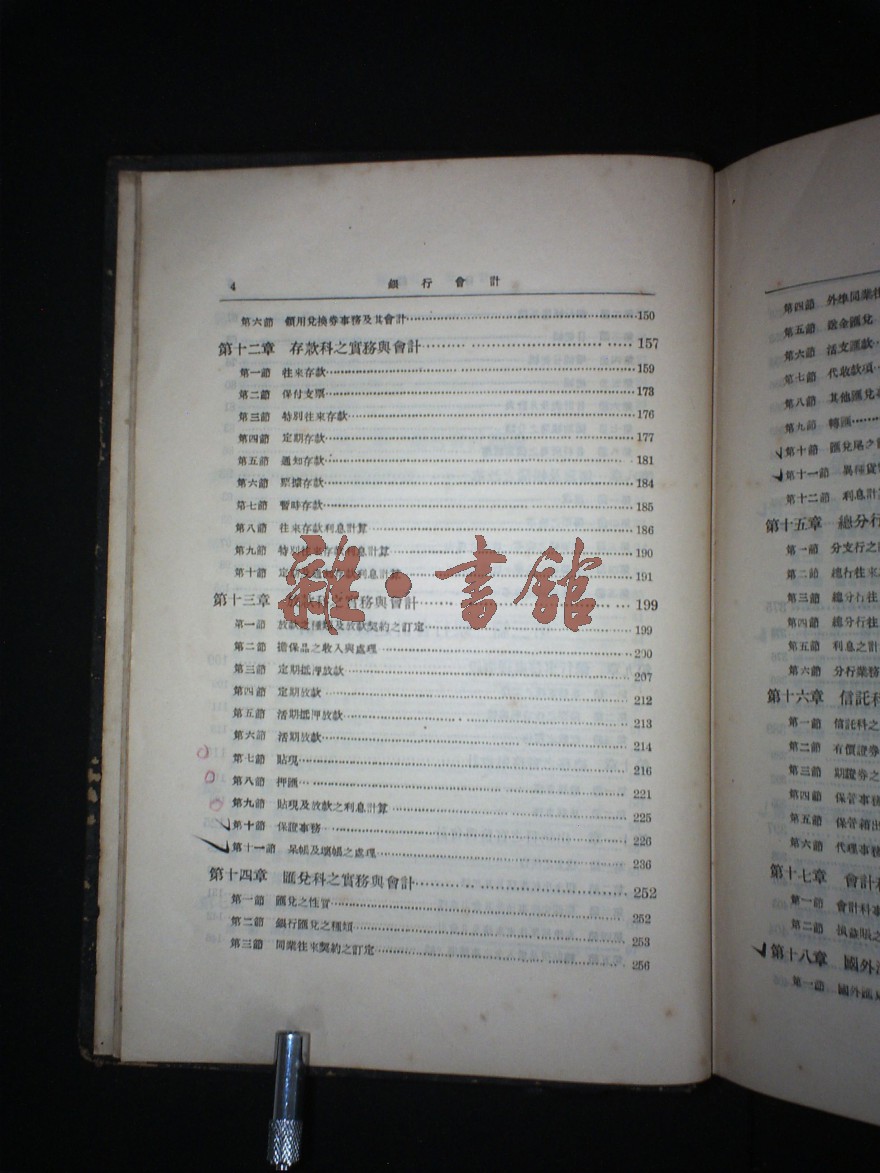 4 銀行會計
第六節 領用兌換券事務及其會計 150
第十二章 存款科之實務與會計 157
第一節 往來存款 159
第二節 保付支票 173
第三節 特別往來存款 176
第四節 定期存款 177
第五節 通知存款 181
第六節 票據存款 184
第七節 暫時存款 185
第八節 往來存款利息計算 186
第九節 特別往來存款利息計算 190
第十節 定期及通知存款利息計算 191
雜·書館
第十三章 放款科之實務與會計 199
第一節 放款之種類及放款契約之訂定 199
第二節 擔保品之收入與處理 200
第三節 定期抵押放款 207
第四節 定期放款 212
第五節 活期抵押放款 213
第六節 活期放款 214
第七節 貼現 216
第八節 押匯 221
第九節 貼現及放款之利息計算 225
第十節 保證事務 226
第十一節 呆帳及壞帳之處理 236
第十四章 匯兌科之實務與會計 252
第一節 匯兌之性質 252
第二節 銀行匯兌之種類 253
第三節 同業往來契約之訂定 256
第四節 外埠同業往
第五節 送金匯兌
第六節 活支匯款
第七節 代收款項
第八節 其他匯兌
第九節 轉匯
第十節 匯兌尾之
第十一節 異種貨
第十二節 利息計
第十五章 總分行
第一節 分支行之
第二節 總行往來
第三節 總分行往
第四節 總分行往
第五節 利息之計
第六節 分行業務
第十六章 信託科
第一節 信託科之
第二節 有價證券
第三節 期證券之
第四節 保管事務
第五節 保管箱出
第六節 代理事務
第十七章 會計科
第一節 會計科事
第二節
第十八章 國外
第一節 國外匯